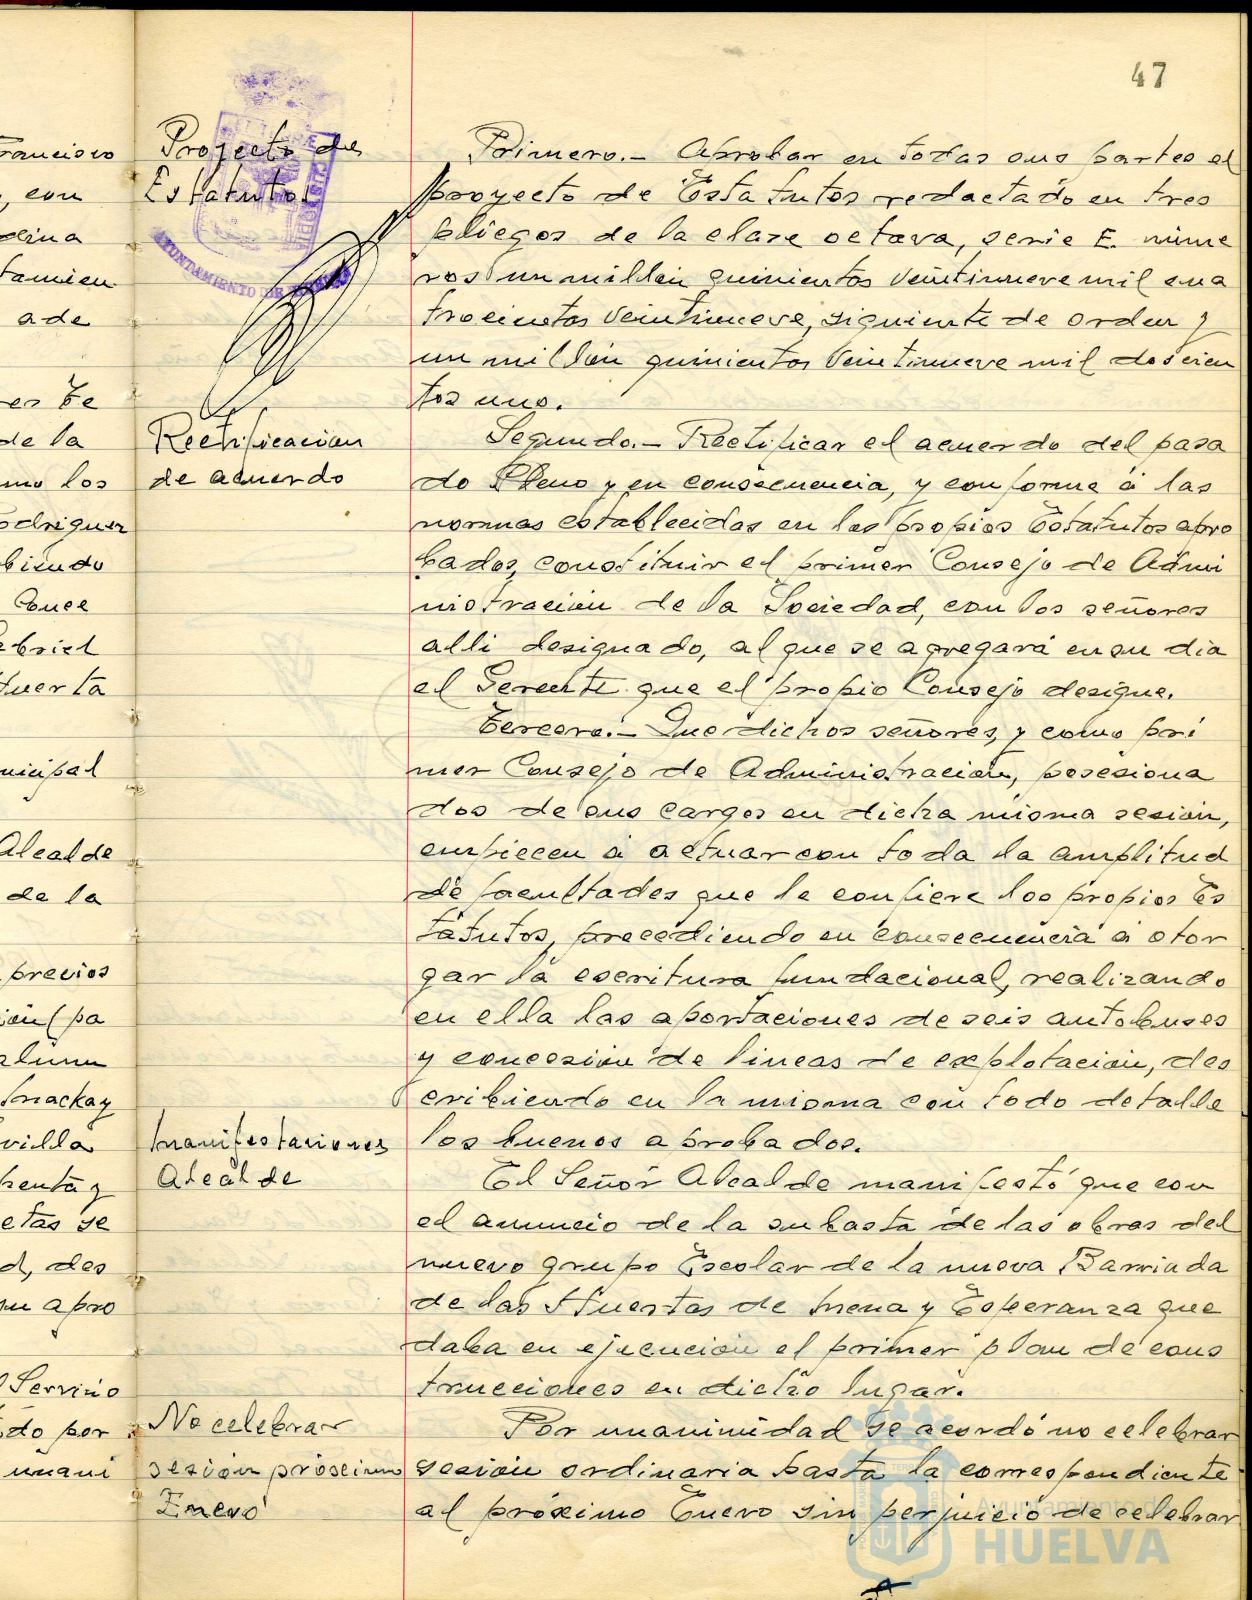 47
Francisco
, con
dina
tamien
a de
res Te
de la
mo los
odriguez
biendo
Conce
abriel
Huerta
nicipal
Alcalde
de la
previos
ión (pa
alum
Mackay
villa
henta y
etas se
d, des
su apro
l Servicio
do por
unani
Proyecto de
Estatutos
AYUNTAMIENTO DE HUELVA
Rectificacion
de acuerdo
Manifestaciones
Alcalde
No celebrar
sesión próximo
Enero
Primero.- Aprobar en todas sus partes el
proyecto de Estatutos redactado en tres
pliegos de la clase octava, serie E. núme
ros un millón quinientos veintinueve mil cua
trocientos veintinueve, siguiente de orden y
un millón quinientos veintinueve mil doscien
tos uno.
Segundo.- Rectificar el acuerdo del pasa
do Pleno y en consecuencia, y conforme á las
normas establecidas en los propios Estatutos apro
bados, constituir el primer Consejo de Admi
nistración de la Sociedad, con los señores
alli designado, al que se agregará en su dia
el Gerente que el propio Consejo designe.
Tercero.- Que dichos señores, y como pri
mer Consejo de Administración, posesiona
dos de sus cargos en dicha misma sesión,
empiecen á actuar con toda la amplitud
de facultades que le confiere los propios Es
tatutos, procediendo en consecuencia á otor
gar la escritura fundacional, realizando
en ella las aportaciones de seis autobuses
y concesión de lineas de explotación, des
cribiendo en la misma con todo detalle
los buenos aprobados.
El Señor Alcalde manifestó que con
el anuncio de la subasta de las obras del
nuevo grupo Escolar de la nueva Barriada
de las Huertas de Mena y Esperanza que
daba en ejecución el primer plan de cons
trucciones en dicho lugar.
Por unanimidad se acordó no celebrar
sesión ordinaria hasta la correspondiente
al próximo Enero sin perjuicio de celebrar
Ayuntamiento de
HUELVA